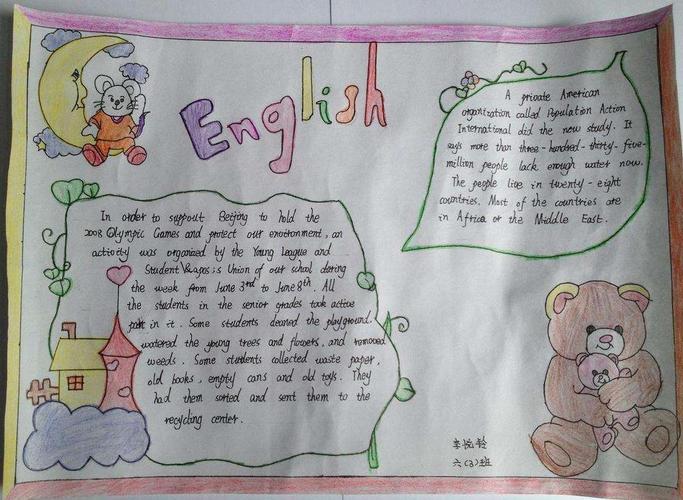 English
In order to support Beijing to hold the
2008 Olympic Games and protect our environment, an
activity was organized by the Young League and
Student Union of our school daring
the week from June 3rd to June 8th. All
the students in the senior grades took active
part in it. Some students cleaned the playground.
watered the young trees and flowers, and removed
weeds. Some students collected waste paper,
old books, empty cans and old toys. They
had them sorted and sent them to the
recycling center.
A private American
organization called Population Action
International did the new study. It
says more than three-hundred-thirty-five-
million people lack enough water now.
The people live in twenty-eight
countries. Most of the countries are
in Africa or the Middle East.
李悦龄
六(3)班